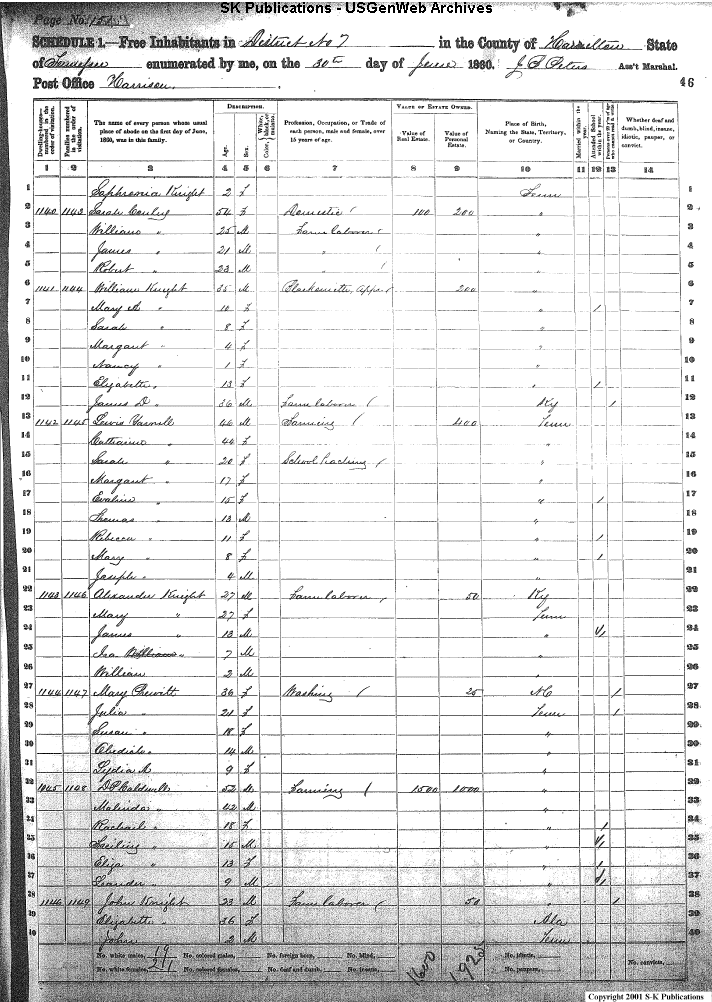 SK Publications - USGenWeb Archives
Page No. 152
SCHEDULE 1.—Free Inhabitants in District No 7 in the County of Hamilton State
of Tennessee enumerated by me, on the 30th day of June 1860. J B Peters Ass't Marshal.
Post Office Harrison. 46
DESCRIPTION. VALUE OF ESTATE OWNED.
Dwelling-houses—numbered in the order of visitation. Families numbered in the order of visitation. The name of every person whose usual place of abode on the first day of June, 1860, was in this family. Age. Sex. Color, White, black, or mulatto. Profession, Occupation, or Trade of each person, male and female, over 15 years of age. Value of Real Estate. Value of Personal Estate. Place of Birth, Naming the State, Territory, or Country. Married within the year. Attended School within the year. Whether deaf and dumb, blind, insane, idiotic, pauper, or convict.
1 2 3 4 5 6 7 8 9 10 11 12 13 14
1 Sophronia Knight 2 F Tenn 1
2 1140 1143 Sarah 54 F Domestic 100 200 " 2
3 William " 25 M Farm laborer " 3
4 James " 21 M " " 4
5 Robert " 23 M " " 5
6 1141 1144 William Knight 35 M Blacksmith, 200 " 6
7 Mary A " 10 F " 1 7
8 Sarah " 8 F " 8
9 Margaret " 4 F " 9
10 Nancy " 1 F " 10
11 Elizabeth " 13 F " 1 11
12 James D " 36 M Farm laborer Ky 1 12
13 1142 1145 Lewis Yarnell 46 M Farming 400 Tenn 13
14 Catharine " 44 F " 14
15 Sarah " 20 F School teaching " 15
16 Margaret " 17 F " 16
17 Evaline " 15 F " 1 17
18 Thomas " 13 M " 18
19 Rebecca " 11 F " 1 19
20 Mary " 8 F " 1 20
21 Joseph " 4 M " 21
22 1143 1146 Alexander Knight 27 M Farm laborer 50 Ky 22
23 Mary " 27 F Tenn 23
24 James " 13 M " 1 24
25 Ira " 7 M " 25
26 William 2 M " 26
27 1144 1147 Mary 36 F Washing 25 NC 1 27
28 Julia " 21 F Tenn 1 28
29 Susan " 18 F " 29
30 " 14 M " 30
31 Lydia A 9 F " 31
32 1045 1148 D P Caldwell 52 M Farming 1500 1000 " 32
33 Malinda " 42 M " 33
34 Rachael " 18 F " 1 34
35 " 15 M " 1 35
36 Eliza " 13 F " 1 36
37 Leander " 9 M " 1 37
38 1146 1149 John Knight 23 M Farm laborer 50 " 1 38
39 Elizabeth " 36 F Ala 39
40 John " 2 M Tenn 40
No. white males, 19 No. colored males, No. foreign born, No. blind, 1600 1925 No. idiotic,
No. white females, 21 No. colored females, No. deaf and dumb, No. insane, No. paupers, No. convicts,
Copyright 2001 S-K Publications